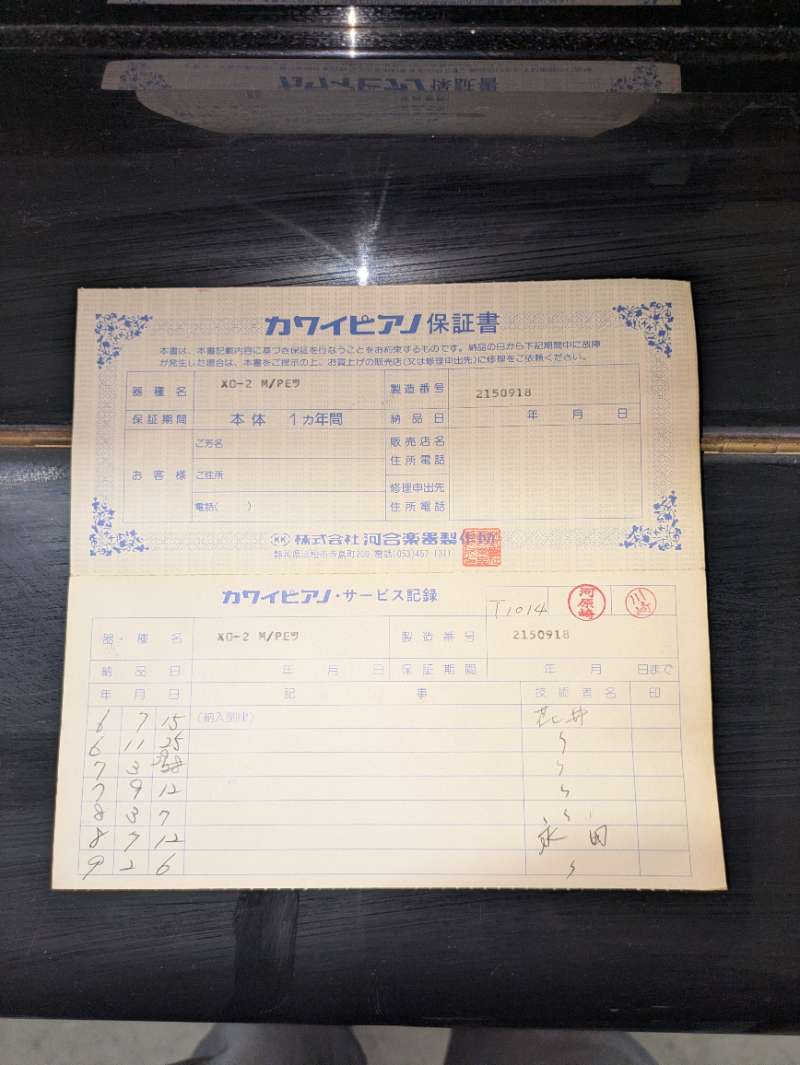 カワイピアノ保証書
本書は、本書記載内容に基づき保証を行なうことをお約束するものです。納品の日から下記期間中に故障
が発生した場合は、本書をご提示の上、お買上げの販売店(又は修理申出先)に修理をご依頼ください。
器種名 XO-2 M/PEウ 製造番号 2150918
保証期間 本体 1カ年間 納品日 年 月 日
お客様 ご芳名 販売店名
住所電話
ご住所
修理申出先
電話( ) 住所電話
株式会社 河合楽器製作所
静岡県浜松市寺島町200 電話(053)457-1311
カワイピアノ・サービス記録
T1014 河原崎 川崎
器・種名 XO-2 M/PEウ 製造番号 2150918
納品日 年 月 日 保証期間 年 月 日まで
年 月 日 記事 技術者名 印
6 7 15 (納入調律) 花井
6 11 25 〃
7 3 〃
7 9 12 〃
8 3 7 〃
8 7 12 永田
9 2 6 〃